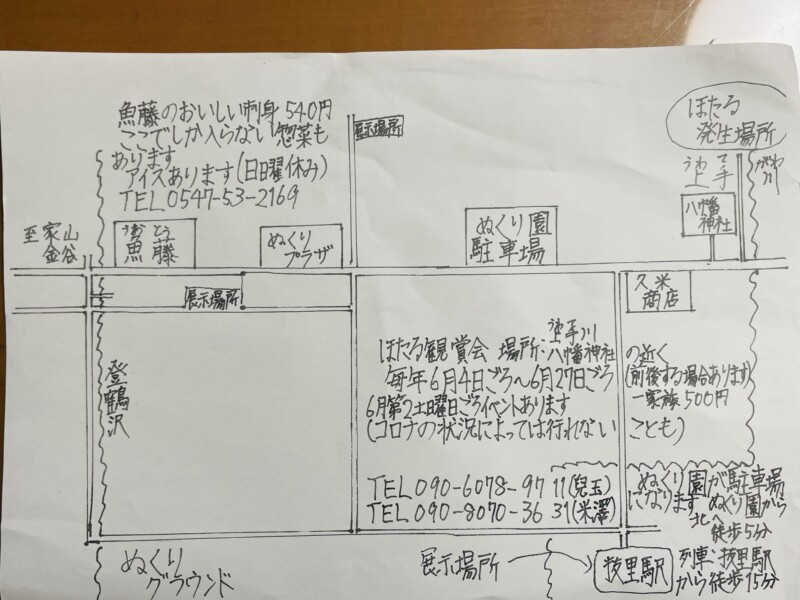 魚藤のおいしい刺身 540円
ここでしか入らない惣菜も
あります
アイスあります(日曜休み)
TEL 0547-53-2169
展示場所
ほたる
発生場所
うわって
上手
がわ
川
至家山
金谷
うお とう
魚 藤
ぬくり
プラザ
ぬくり園
駐車場
八幡
神社
展示場所
久米
商店
登鶴沢
ほたる観賞会 場所:上手川
八幡神社
の近く
毎年6月4日ごろ~6月27日ごろ
(前後する場合あります)
6月第2土曜日ごろイベントあります
一家族500円
(コロナの状況によっては行れない
ことも)
TEL 090-6078-9711(兒玉)
TEL 090-8070-3631(米澤)
ぬくり園が駐車場
になります ぬくり園から
北へ
徒歩5分
ぬくり
グラウンド
展示場所
抜里駅
列車:抜里駅
から徒歩15分